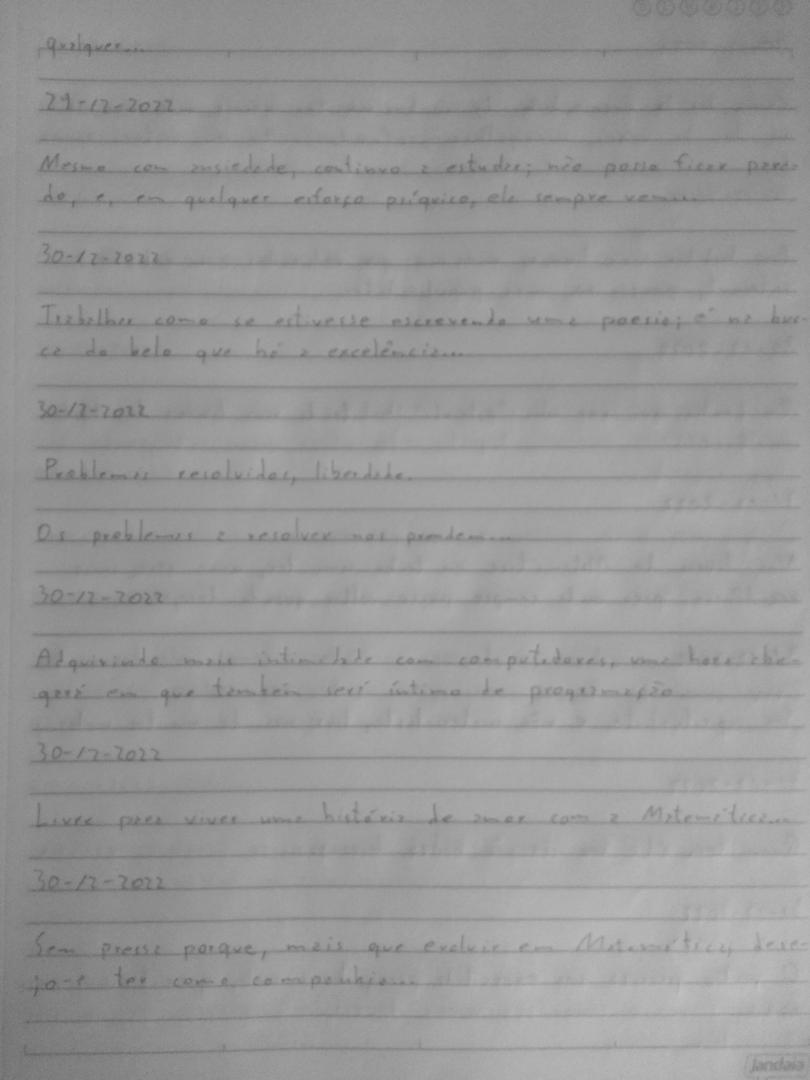 qualquer...
29-12-2022
Mesmo com ansiedade, continuo a estudar; não posso ficar para-
do, e, em qualquer esforço psíquico, ela sempre vem...
30-12-2022
Trabalhar como se estivesse escrevendo uma poesia; é na bus-
ca do belo que há a excelência...
30-12-2022
Problemas resolvidos, liberdade.
Os problemas a resolver nos prendem...
30-12-2022
Adquirindo mais intimidade com computadores, uma hora che-
gará em que também será íntimo de programação.
30-12-2022
Livre para viver uma história de amor com a Matemática...
30-12-2022
Sem pressa porque, mais que evoluir em Matemática, dese-
jo-a ter como companhia...
Jandaia